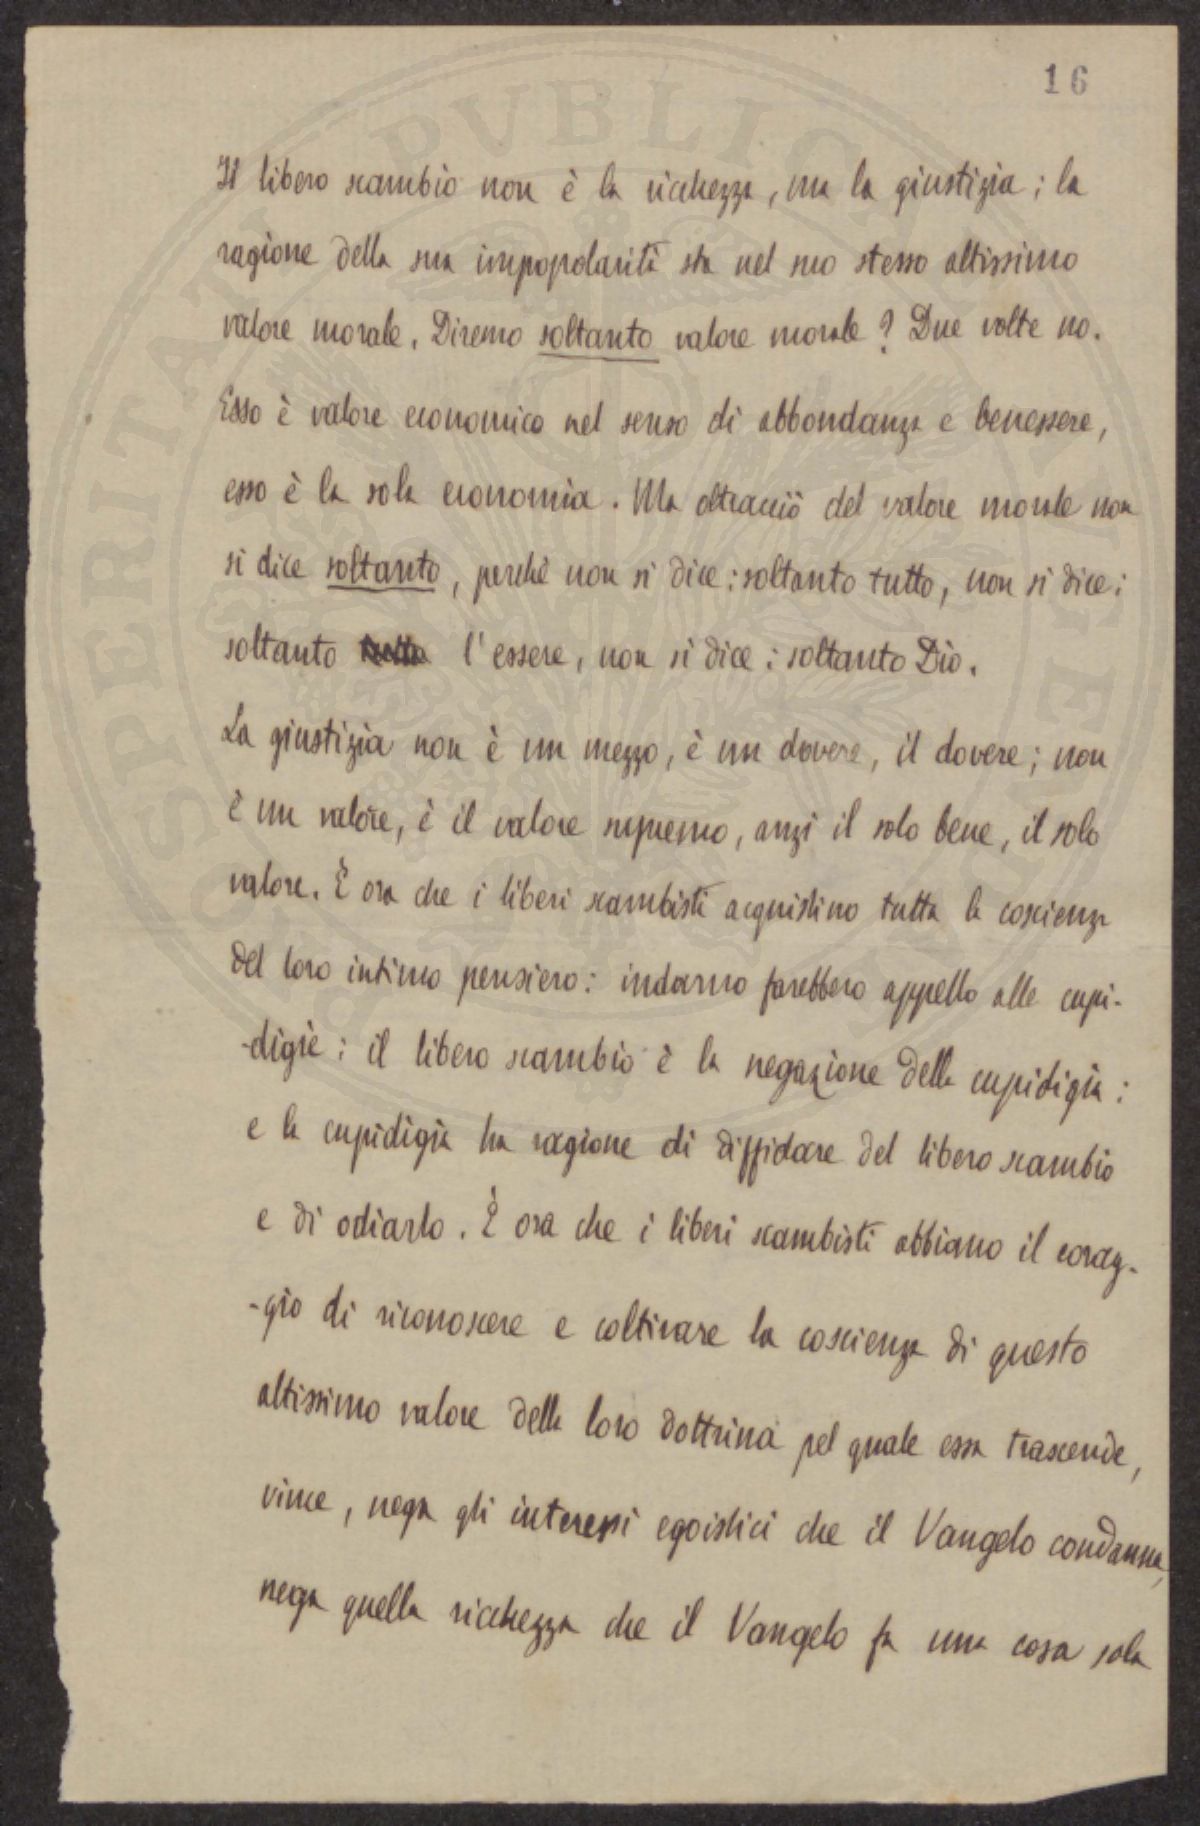 16
Il libero scambio non è la ricchezza, ma la giustizia; la
ragione della sua impopolarità sta nel suo stesso altissimo
valore morale. Diremo soltanto valore morale? Due volte no.
Esso è valore economico nel senso di abbondanza e benessere,
esso è la sola economia. Ma oltracciò del valore morale non
si dice soltanto, perchè non si dice: soltanto tutto, non si dice:
soltanto l'essere, non si dice: soltanto Dio.
La giustizia non è un mezzo, è un dovere, il dovere; non
è un valore, è il valore supremo, anzi il solo bene, il solo
valore. È ora che i liberi scambisti acquistino tutta la coscienza
del loro intimo pensiero: indarno farebbero appello alle cupi-
-digie: il libero scambio è la negazione della cupidigia:
e la cupidigia ha ragione di diffidare del libero scambio
e di odiarlo. È ora che i liberi scambisti abbiano il corag-
-gio di riconoscere e coltivare la coscienza di questo
altissimo valore della loro dottrina pel quale essa trascende,
vince, nega gli interessi egoistici che il Vangelo condanna,
nega quella ricchezza che il Vangelo fa una cosa sola